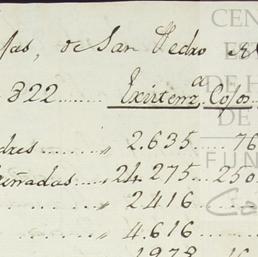 de San Pedro
822 Existenz.ª Co/o
dres " 2.635 76
eñadas " 24.275 250
" 2416
" 4.616
1978
CEN
E
DE H
DE
FUN